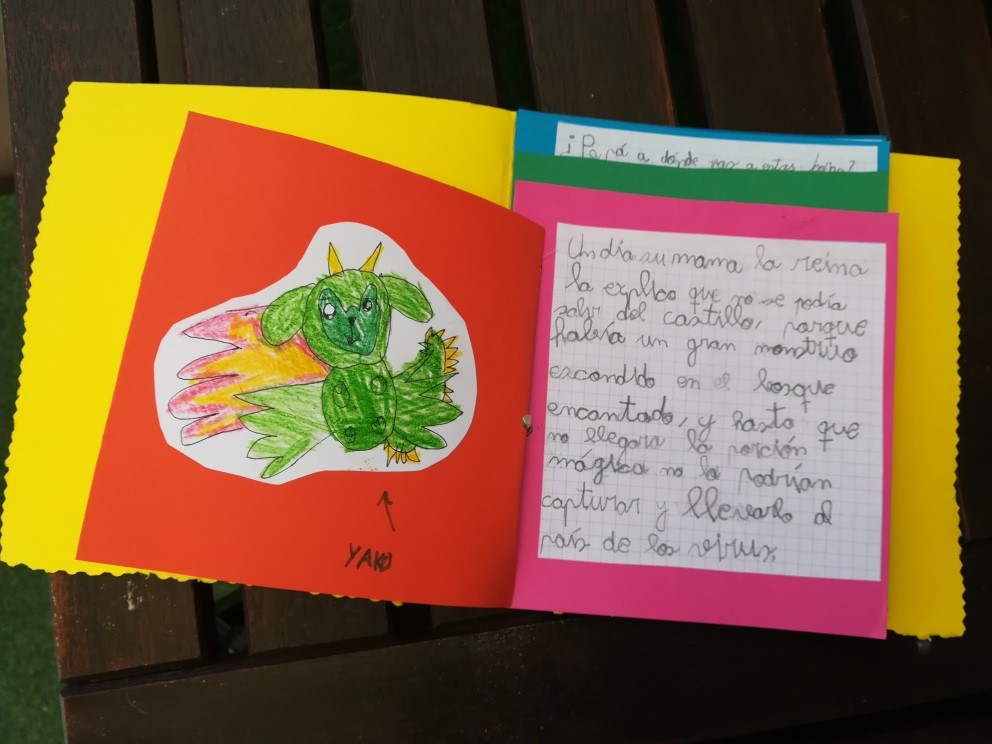 YAKO
¡Papá a dónde vas a estas horas?
Un día su mama la reina
la explico que no se podía
salir del castillo, porque
había un gran monstruo
escondido en el bosque
encantado, y hasta que
no llegara la porción
mágica no lo podrían
capturar y llevarlo al
país de los virus,